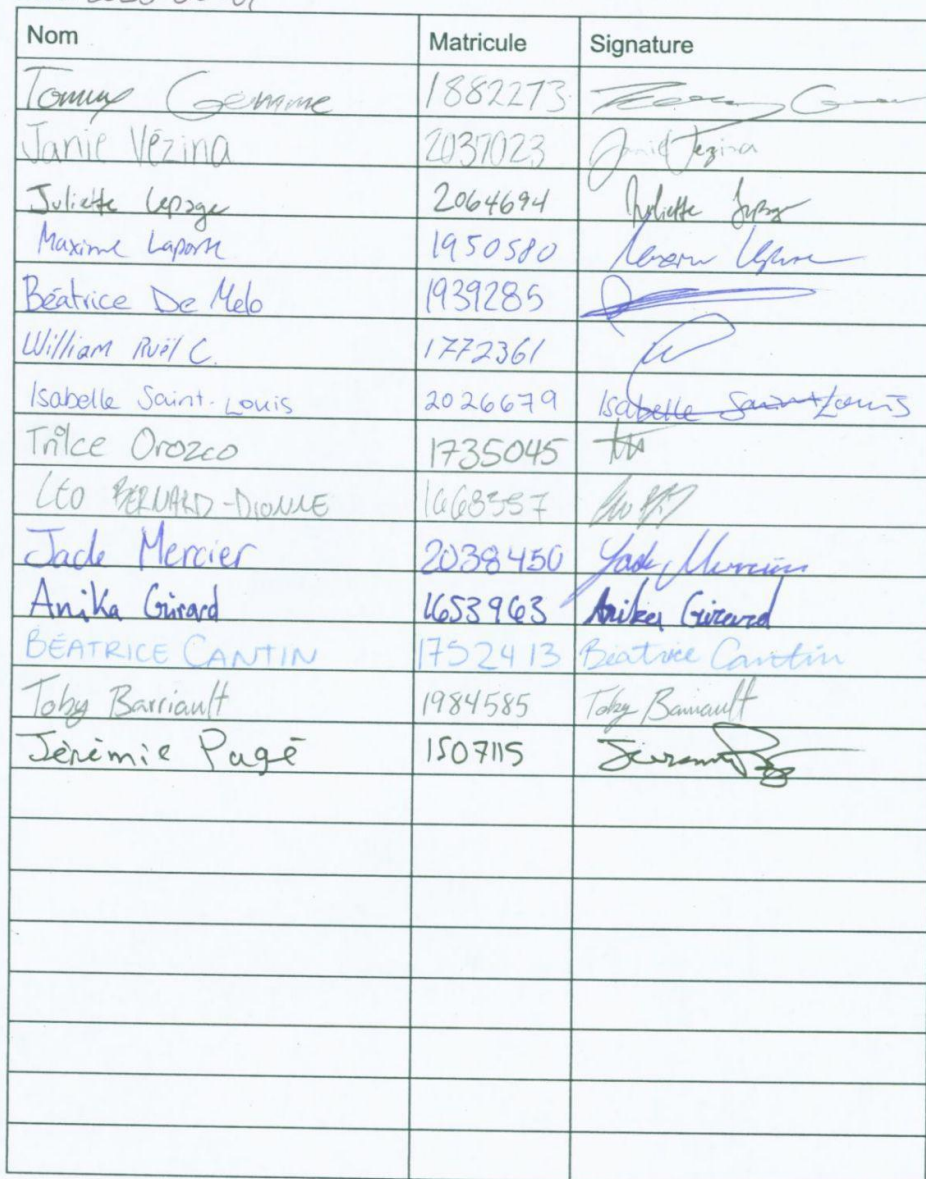 Nom Matricule Signature
Tommy Gemme 1882273
Janie Vézina 2037023 Janie Vézina
Juliette Lepage 2064694 Juliette Lepage
Maxime Laporte 1950580
Béatrice De Melo 1939285
William Ruel C. 1772361
Isabelle Saint-Louis 2026679 Isabelle Saint-Louis
Trilce Orozco 1735045
LÉO BERNARD-DIONNE
Jade Mercier 2038450 Jade Mercier
Anika Girard 1653963 Anika Girard
BÉATRICE CANTIN 1752413 Béatrice Cantin
Toby Barriault 1984585 Toby Barriault
Jérémie Pagé 1507115